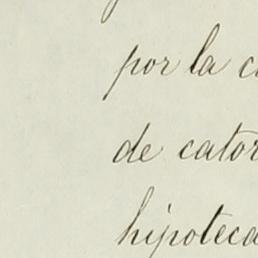 por la c
de cator
hipoteca